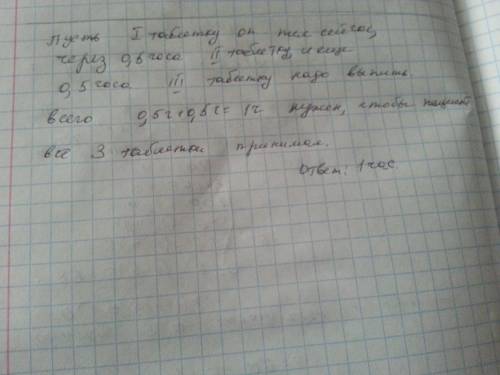 Пусть I таблетку он пьёт сейчас,
через 0,5 часа II таблетку, и еще
0,5 часа III таблетку надо выпить.
всего 0,5ч+0,5ч=1ч нужен, чтобы пациент
все 3 таблетки принимал.
Ответ: 1 час.